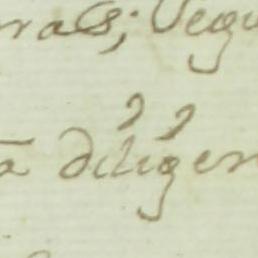 rals; Segu
a diligen